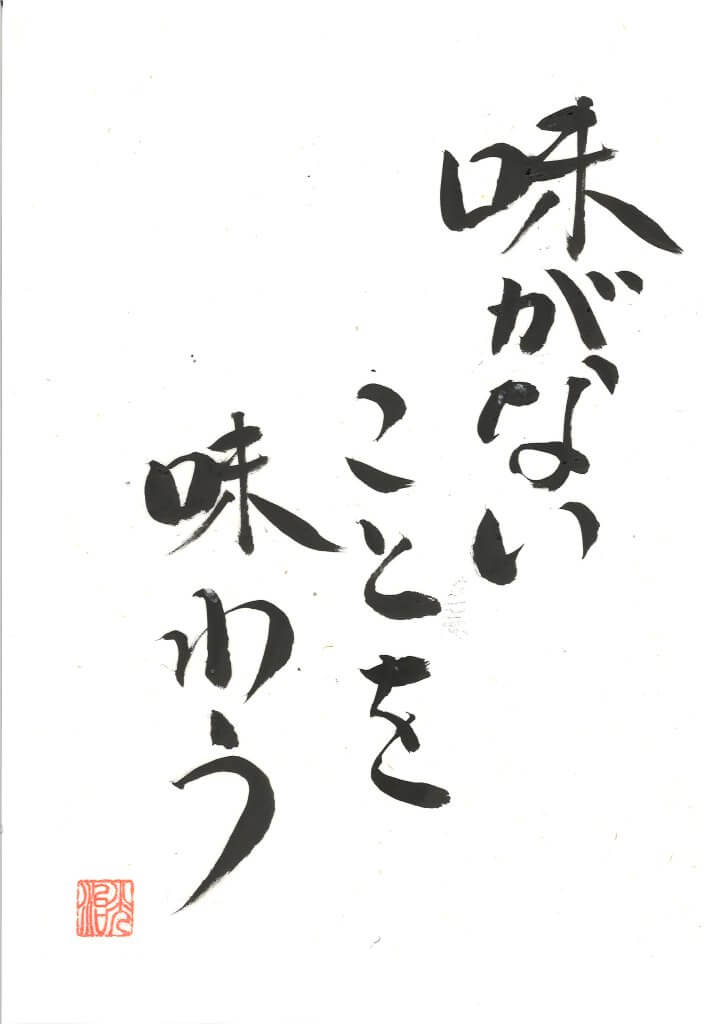 味がない
ことを
味わう